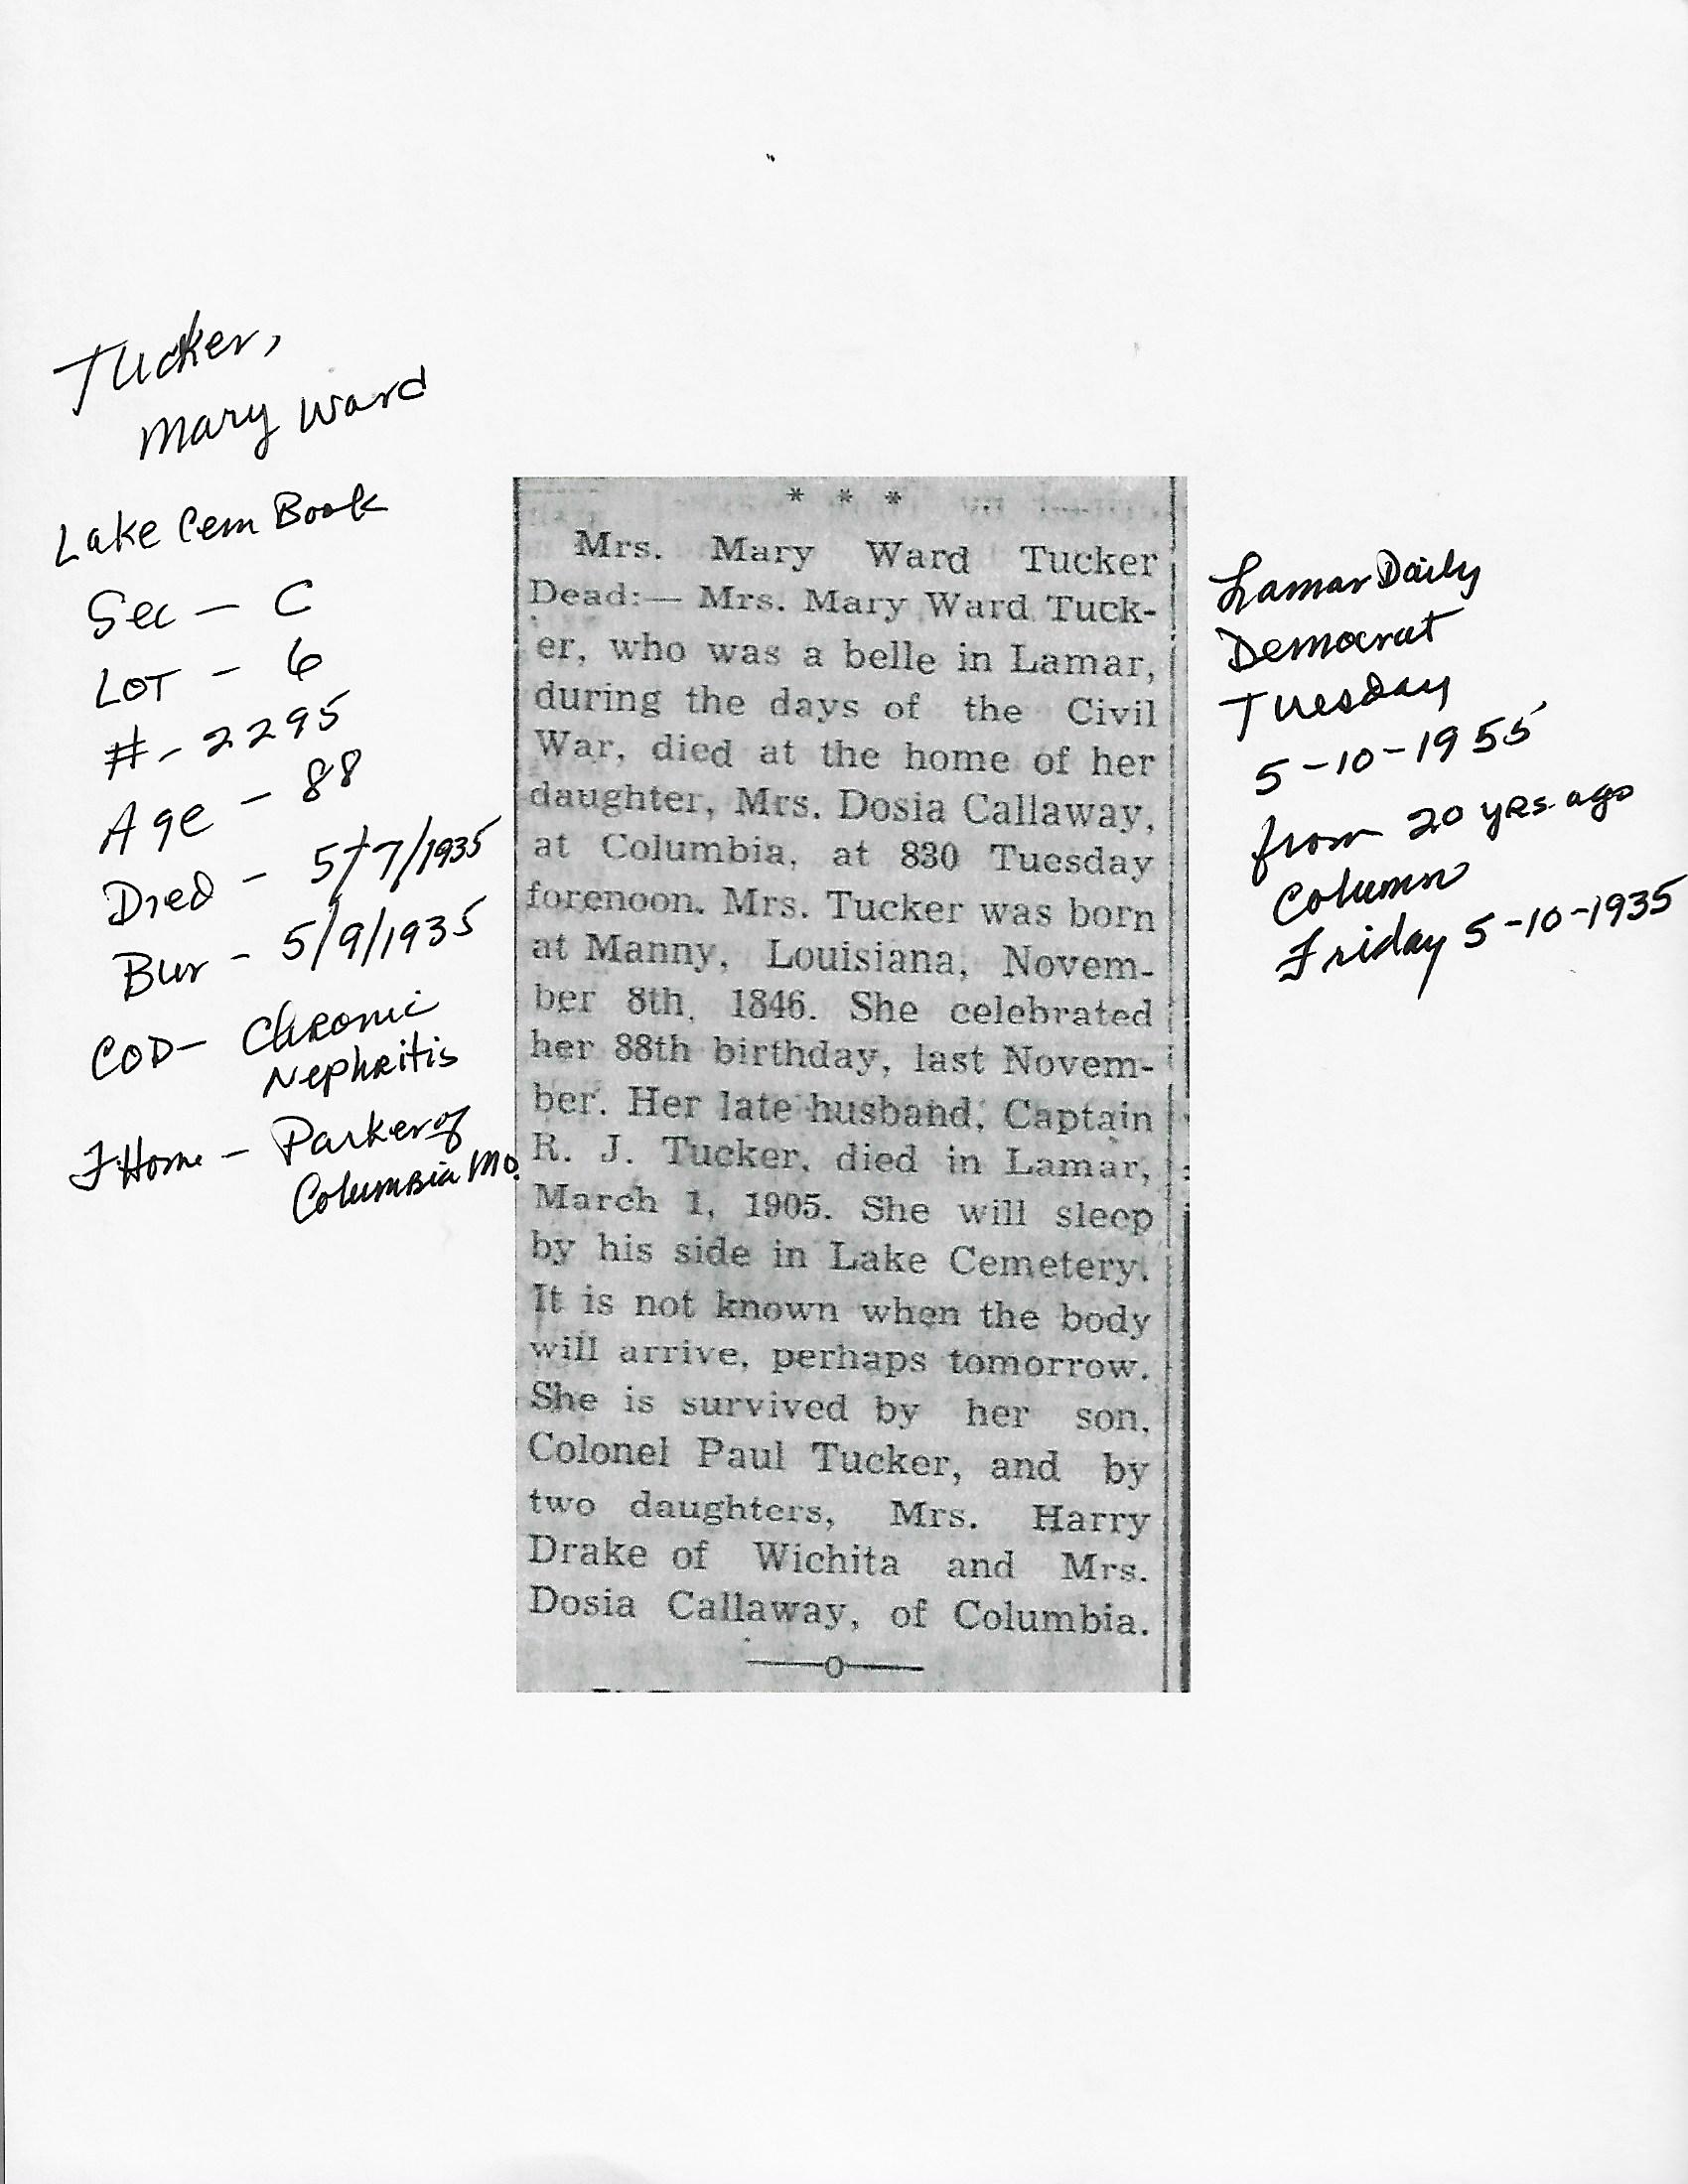 Tucker,
Mary Ward
Lake Cem Book
Sec - C
LOT - 6
#- 2295
Age - 88
Died - 5/7/1935
Bur - 5/9/1935
COD- Chronic
Nephritis
F Home - Parker of
Columbia Mo.
* * *
Mrs. Mary Ward Tucker
Dead:— Mrs. Mary Ward Tuck-
er, who was a belle in Lamar,
during the days of the Civil
War, died at the home of her
daughter, Mrs. Dosia Callaway,
at Columbia, at 830 Tuesday
forenoon. Mrs. Tucker was born
at Manny, Louisiana, Novem-
ber 8th, 1846. She celebrated
her 88th birthday, last Novem-
ber. Her late husband, Captain
R. J. Tucker, died in Lamar,
March 1, 1905. She will sleep
by his side in Lake Cemetery.
It is not known when the body
will arrive, perhaps tomorrow.
She is survived by her son,
Colonel Paul Tucker, and by
two daughters, Mrs. Harry
Drake of Wichita and Mrs.
Dosia Callaway, of Columbia.
——o——
Lamar Daily
Democrat
Tuesday
5-10-1955
from 20 yrs. ago
Column
Friday 5-10-1935